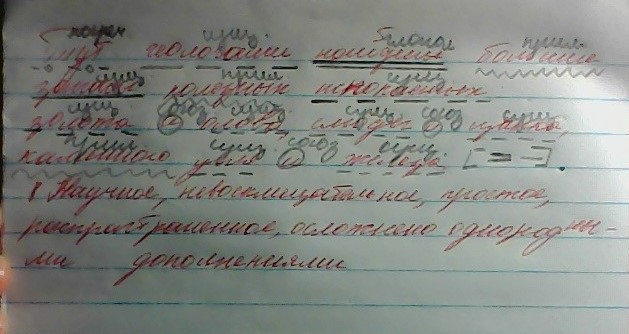 нареч сущ. глагол прил.
Тут геологами найдены большие
сущ прил. сущ
запасы полезных ископаемых
сущ союз сущ союз сущ
золота и олова, слюды и цинка,
прил сущ союз сущ
каменного угля и железа [= -].
Научное, невосклицательное, простое,
распространенное, осложнено однородны-
ми дополнениями